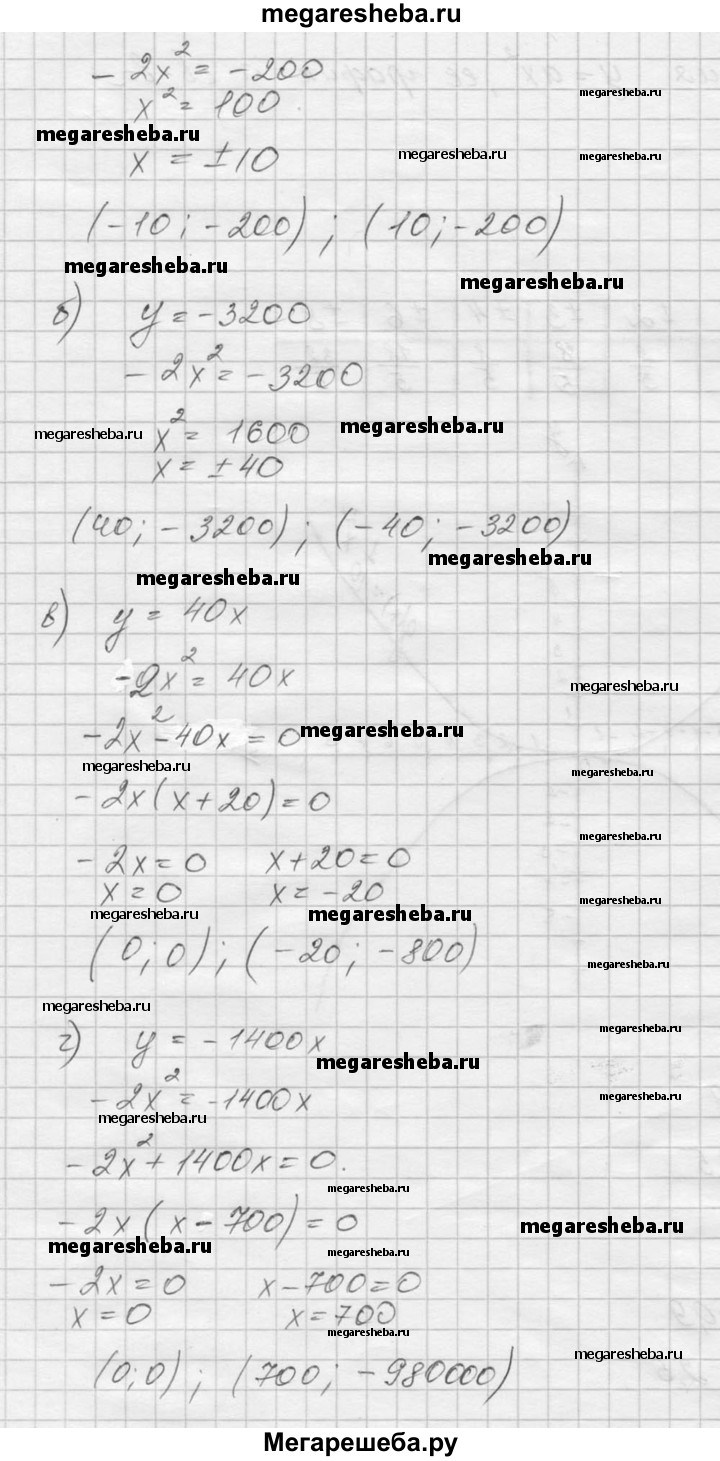 megaresheba.ru
- 2x² = -200
x² = 100
megaresheba.ru
megaresheba.ru
x = ±10
megaresheba.ru
megaresheba.ru
(-10; -200) ; (10; -200)
megaresheba.ru
megaresheba.ru
б) y = -3200
- 2x² = -3200
megaresheba.ru
x² = 1600
megaresheba.ru
x = ±40
(40; -3200) ; (-40; -3200)
megaresheba.ru
megaresheba.ru
в) y = 40x
-2x² = 40x
megaresheba.ru
-2x² - 40x = 0
megaresheba.ru
megaresheba.ru
megaresheba.ru
- 2x (x + 20) = 0
megaresheba.ru
- 2x = 0 x + 20 = 0
x = 0 x = -20
megaresheba.ru
megaresheba.ru
megaresheba.ru
(0; 0) ; (-20; -800)
megaresheba.ru
megaresheba.ru
megaresheba.ru
г) y = -1400x
megaresheba.ru
- 2x² = -1400x
megaresheba.ru
megaresheba.ru
- 2x² + 1400x = 0.
megaresheba.ru
- 2x (x - 700) = 0
megaresheba.ru
megaresheba.ru
megaresheba.ru
- 2x = 0 x - 700 = 0
x = 0 x = 700
megaresheba.ru
megaresheba.ru
(0; 0) ; (700; -980000)
megaresheba.ru
Мегарешеба.ру